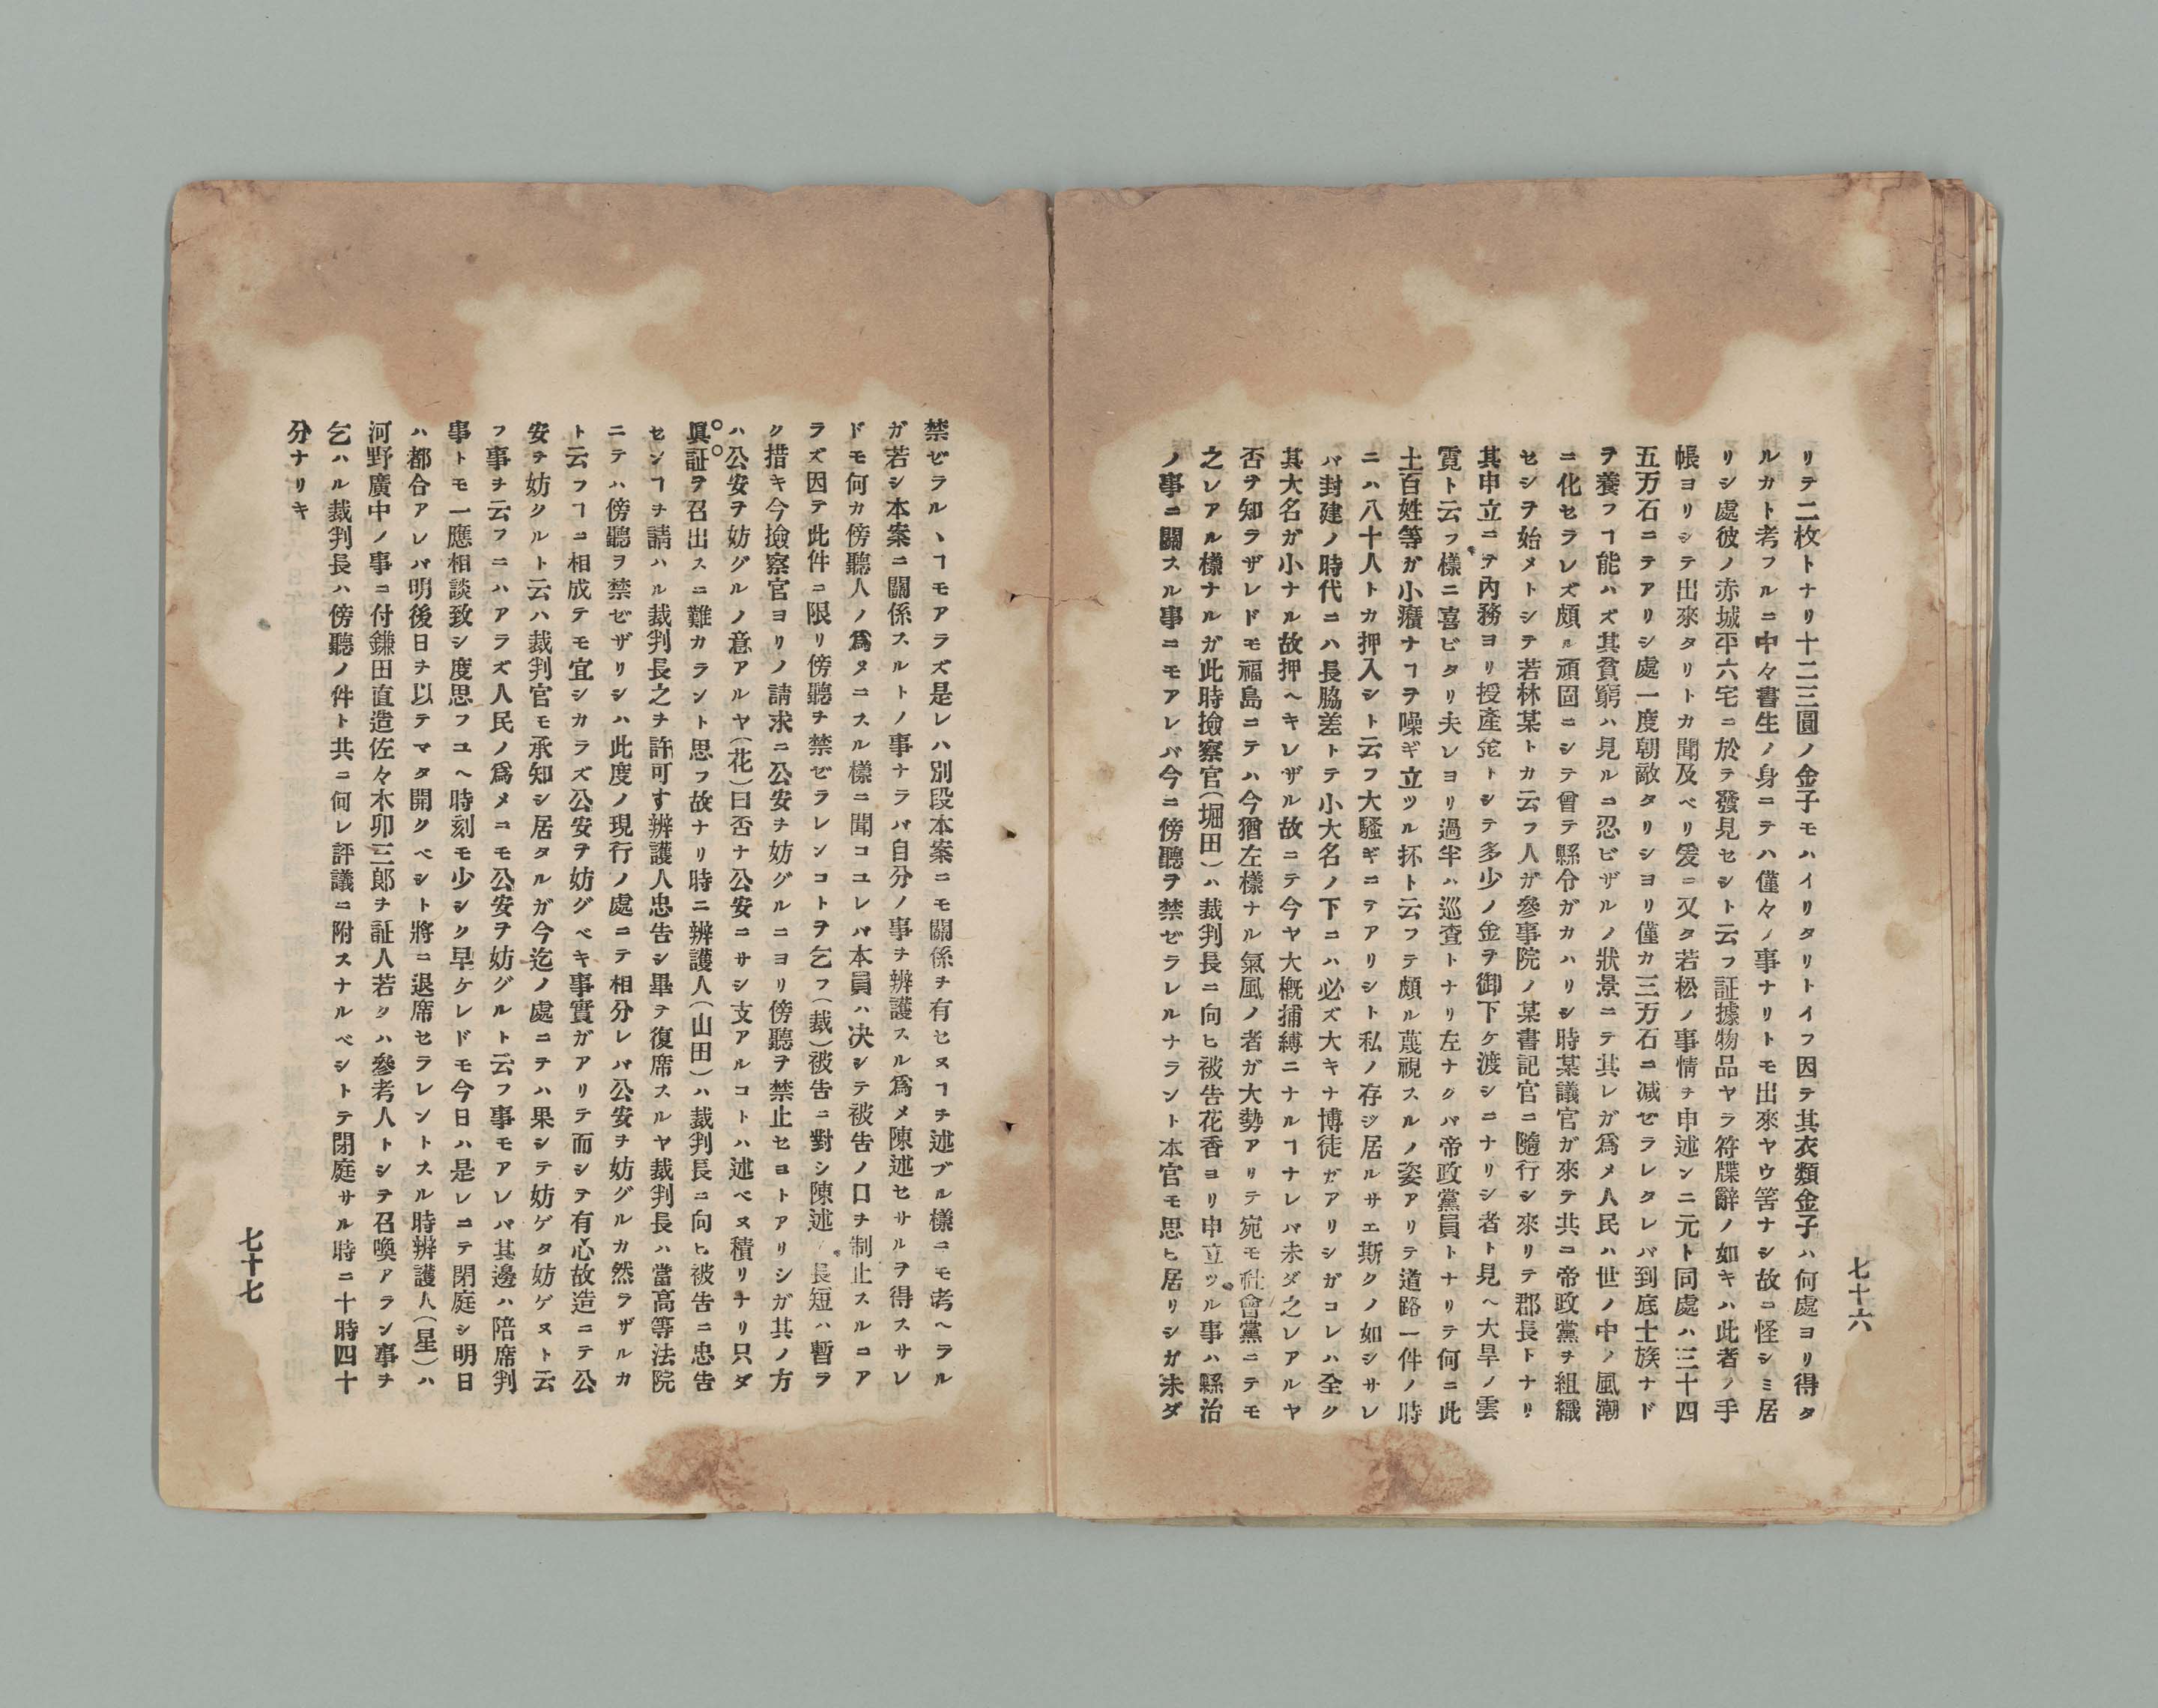 七十六
リテ二枚トナリ十二三圓ノ金子モハイリタリトイフ因テ其衣類金子ハ何處ヨリ得タ
ルカト考フルニ中々書生ノ身ニテハ僅々ノ事ナリトモ出來ヤウ筈ナシ故ニ怪シミ居
リシ處彼ノ赤城平六宅ニ於テ發見セシト云フ証據物品ヤラ符牒辭ノ如キハ此者ノ手
帳ヨリシテ出來タリトカ聞及ベリ爰ニ又タ若松ノ事情ヲ申述ンニ元ト同處ハ三十四
五万石ニテアリシ處一度朝敵タリシヨリ僅カ三万石ニ减ゼラレタレバ到底士族ナド
ヲ養フヿ能ハズ其貧窮ハ見ルニ忍ビザルノ狀景ニテ其レガ爲メ人民ハ世ノ中ノ風潮
ニ化セラレズ頗ル頑固ニシテ曾テ縣令ガカハリシ時某議官ガ來テ共ニ帝政黨ヲ組織
セシヲ始メトシテ若林某トカ云フ人ガ參事院ノ某書記官ニ隨行シ來リテ郡長トナリ
其申立ニテ內務ヨリ授產金トシテ多少ノ金ヲ御下ケ渡シニナリシ者ト見ヘ大旱ノ雲
霓ト云フ樣ニ喜ビタリ夫レヨリ過半ハ巡査トナリ左ナクバ帝政黨員トナリテ何ニ此
土百姓等ガ小癪ナヿヲ噪ギ立ツル抔ト云フテ頗ル蔑視スルノ姿アリテ道路一件ノ時
ニハ八十人トカ押入シト云フ大騷ギニテアリシト私ノ存ジ居ルサエ斯クノ如シサレ
バ封建ノ時代ニハ長脇差トテ小大名ノ下ニハ必ズ大キナ博徒ガアリシガコレハ全ク
其大名ガ小ナル故押ヘキレザル故ニテ今ヤ大槪捕縛ニナルヿナレバ未ダ之レアルヤ
否ヲ知ラザレドモ福島ニテハ今猶左樣ナル氣風ノ者ガ大勢アリテ宛モ社會黨ニテモ
之レアル樣ナルガ此時撿察官（堀田）ハ裁判長ニ向ヒ被告花香ヨリ申立ツル事ハ縣治
ノ事ニ關スル事ニモアレバ今ニ傍聽ヲ禁ゼラレルナラント本官モ思ヒ居リシガ未ダ
禁ゼラルヽヿモアラズ是レハ別段本案ニモ關係ヲ有セヌヿヲ述ブル樣ニモ考ヘラル
ガ若シ本案ニ關係スルトノ事ナラバ自分ノ事ヲ辨護スル爲メ陳述セサルヲ得スサレ
ドモ何カ傍聽人ノ爲メニスル樣ニ聞コユレバ本員ハ决シテ被告ノ口ヲ制止スルニア
ラズ因テ此件ニ限リ傍聽ヲ禁ゼラレンコトヲ乞フ（裁）被告ニ對シ陳述ノ長短ハ暫ラ
ク措キ今撿察官ヨリノ請求ニ公安ヲ妨グルニヨリ傍聽ヲ禁止セヨトアリシガ其ノ方
ハ公安ヲ妨グルノ意アルヤ（花）曰否ナ公安ニサシ支アルコトハ述ベヌ積リナリ只ダ
眞証ヲ召出スニ難カラント思フ故ナリ時ニ辨護人（山田）ハ裁判長ニ向ヒ被告ニ忠告
センヿヲ請ハル裁判長之ヲ許可す辨護人忠告シ畢テ復席スルヤ裁判長ハ當高等法院
ニテハ傍聽ヲ禁ゼザリシハ此度ノ現行ノ處ニテ相分レバ公安ヲ妨グルカ然ラザルカ
ト云フヿニ相成テモ宜シカラズ公安ヲ妨グベキ事實ガアリテ而シテ有心故造ニテ公
安ヲ妨クルト云ハ裁判官モ承知シ居タルガ今迄ノ處ニテハ果シテ妨ゲタ妨ゲヌト云
フ事ヲ云フニハアラズ人民ノ爲メニモ公安ヲ妨グルト云フ事モアレバ其邊ハ陪席判
事トモ一應相談致シ度思フユヘ時刻モ少シク早ケレドモ今日ハ是レニテ閉庭シ明日
ハ都合アレバ明後日ヲ以テマタ開クベシト將ニ退席セラレントスル時辨護人（星）ハ
河野廣中ノ事ニ付鎌田直造佐々木卯三郎ヲ証人若クハ參考人トシテ召喚アラン事ヲ
乞ハル裁判長ハ傍聽ノ件ト共ニ何レ評議ニ附スナルベシトテ閉庭サル時ニ十時四十
分ナリキ
七十七